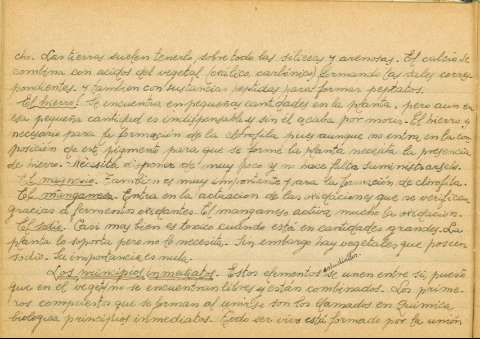 cho. Las tierras suelen tenerlo, sobre todo las silíceas y arenosas. El calcio se
combina con acidos del vegetal (oxalico, carbónico) formando las sales corres-
pondientes y tambien con sustancias pépticas para formar peptatos.
El hierro: Se encuentra en pequeñas cantidades en la planta, pero aun en
esa pequeña cantidad es indispensable y sin él acaba por morir. El hierro es
necesario para la formación de la clorofila pues aunque no entra en la com-
posición de este pigmento para que se forme la planta necesita la presencia
de hierro. Necesita disponer de muy poco y no hace falta suministrarsela.
El magnesio. Tambien es muy importante para la formación de clorofila.
El manganeso. Entra en la activacion de las oxidaciones que se verifican
gracias a fermentos oxidantes. El manganeso activa mucho la oxidación.
El sodio. Casi mas bien es toxico cuando está en cantidades grandes. La
planta lo soporta pero no lo necesita. Sin embargo hay vegetales que poseen
sodio. Su importancia es nula.
Los principios inmediatos. Estos elementos estudiados se unen entre si, puesto
que en el vegetal no se encuentran libres y están combinados. Los prime-
ros compuestos que se forman al unirse son los llamados en Quimica
biologica principios inmediatos. Todo ser vivo está formado por la unión